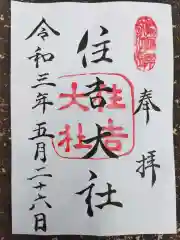 奉拝
住吉大社
住吉
大社
令和三年五月二十六日